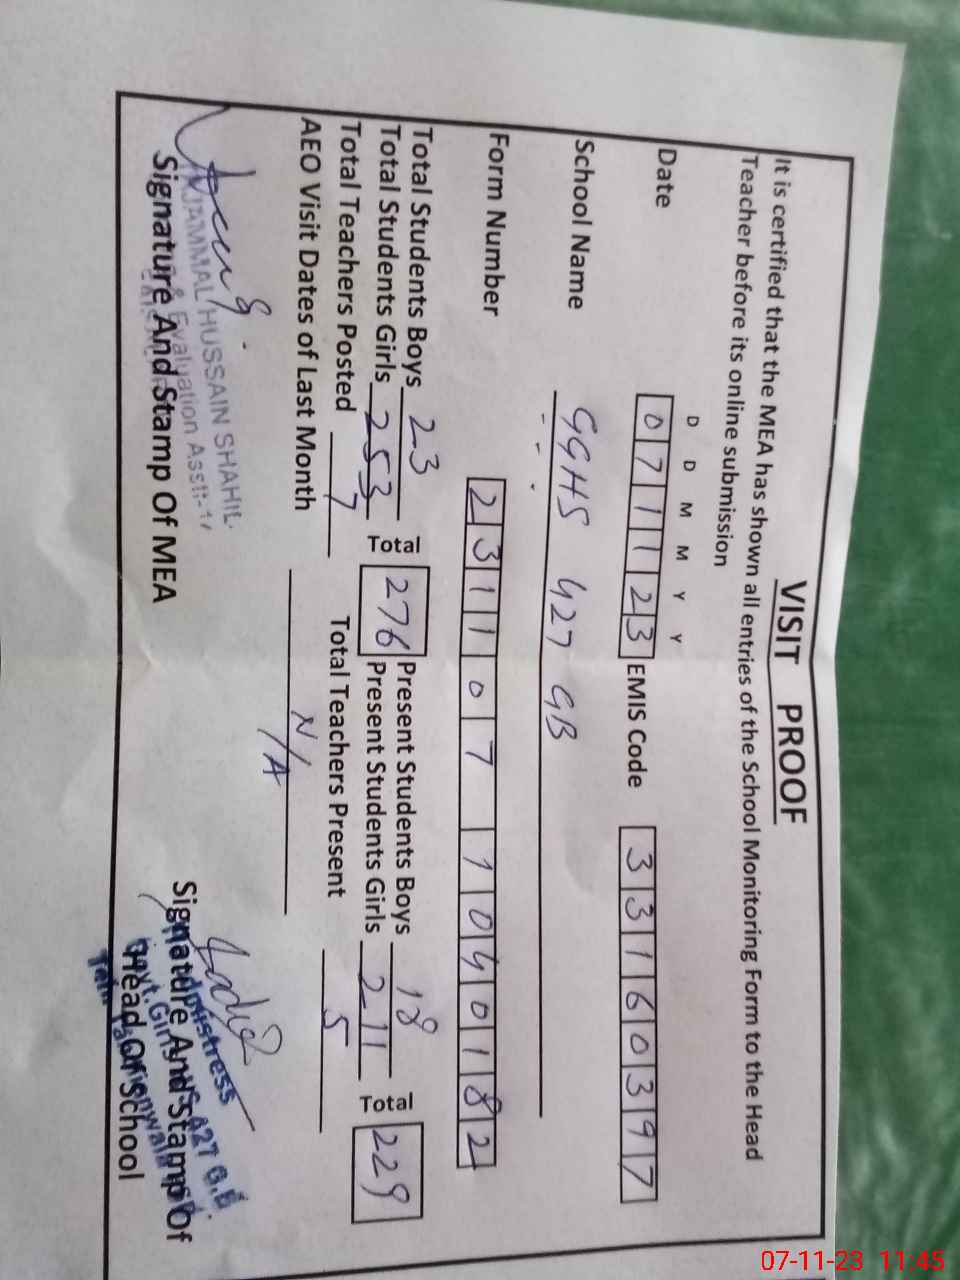 VISIT PROOF
It is certified that the MEA has shown all entries of the School Monitoring Form to the Head
Teacher before its online submission
D D M M Y Y
Date 0 7 1 1 2 3 EMIS Code 3 3 1 6 0 3 9 7
School Name GGHS 427 GB
Form Number 2 3 1 1 0 7 1 0 4 0 1 8 2
Total Students Boys 23 Present Students Boys 18
Total Students Girls 253 Total 276 Present Students Girls 211 Total 229
Total Teachers Posted 7 Total Teachers Present 5
AEO Visit Dates of Last Month N/A
HUSSAIN SHAHID
& Evaluation Asstt
Signature And Stamp Of MEA
Signature And Stamp Of
Head Of School
Govt. Girls 427 G.B.
07-11-23 11:45